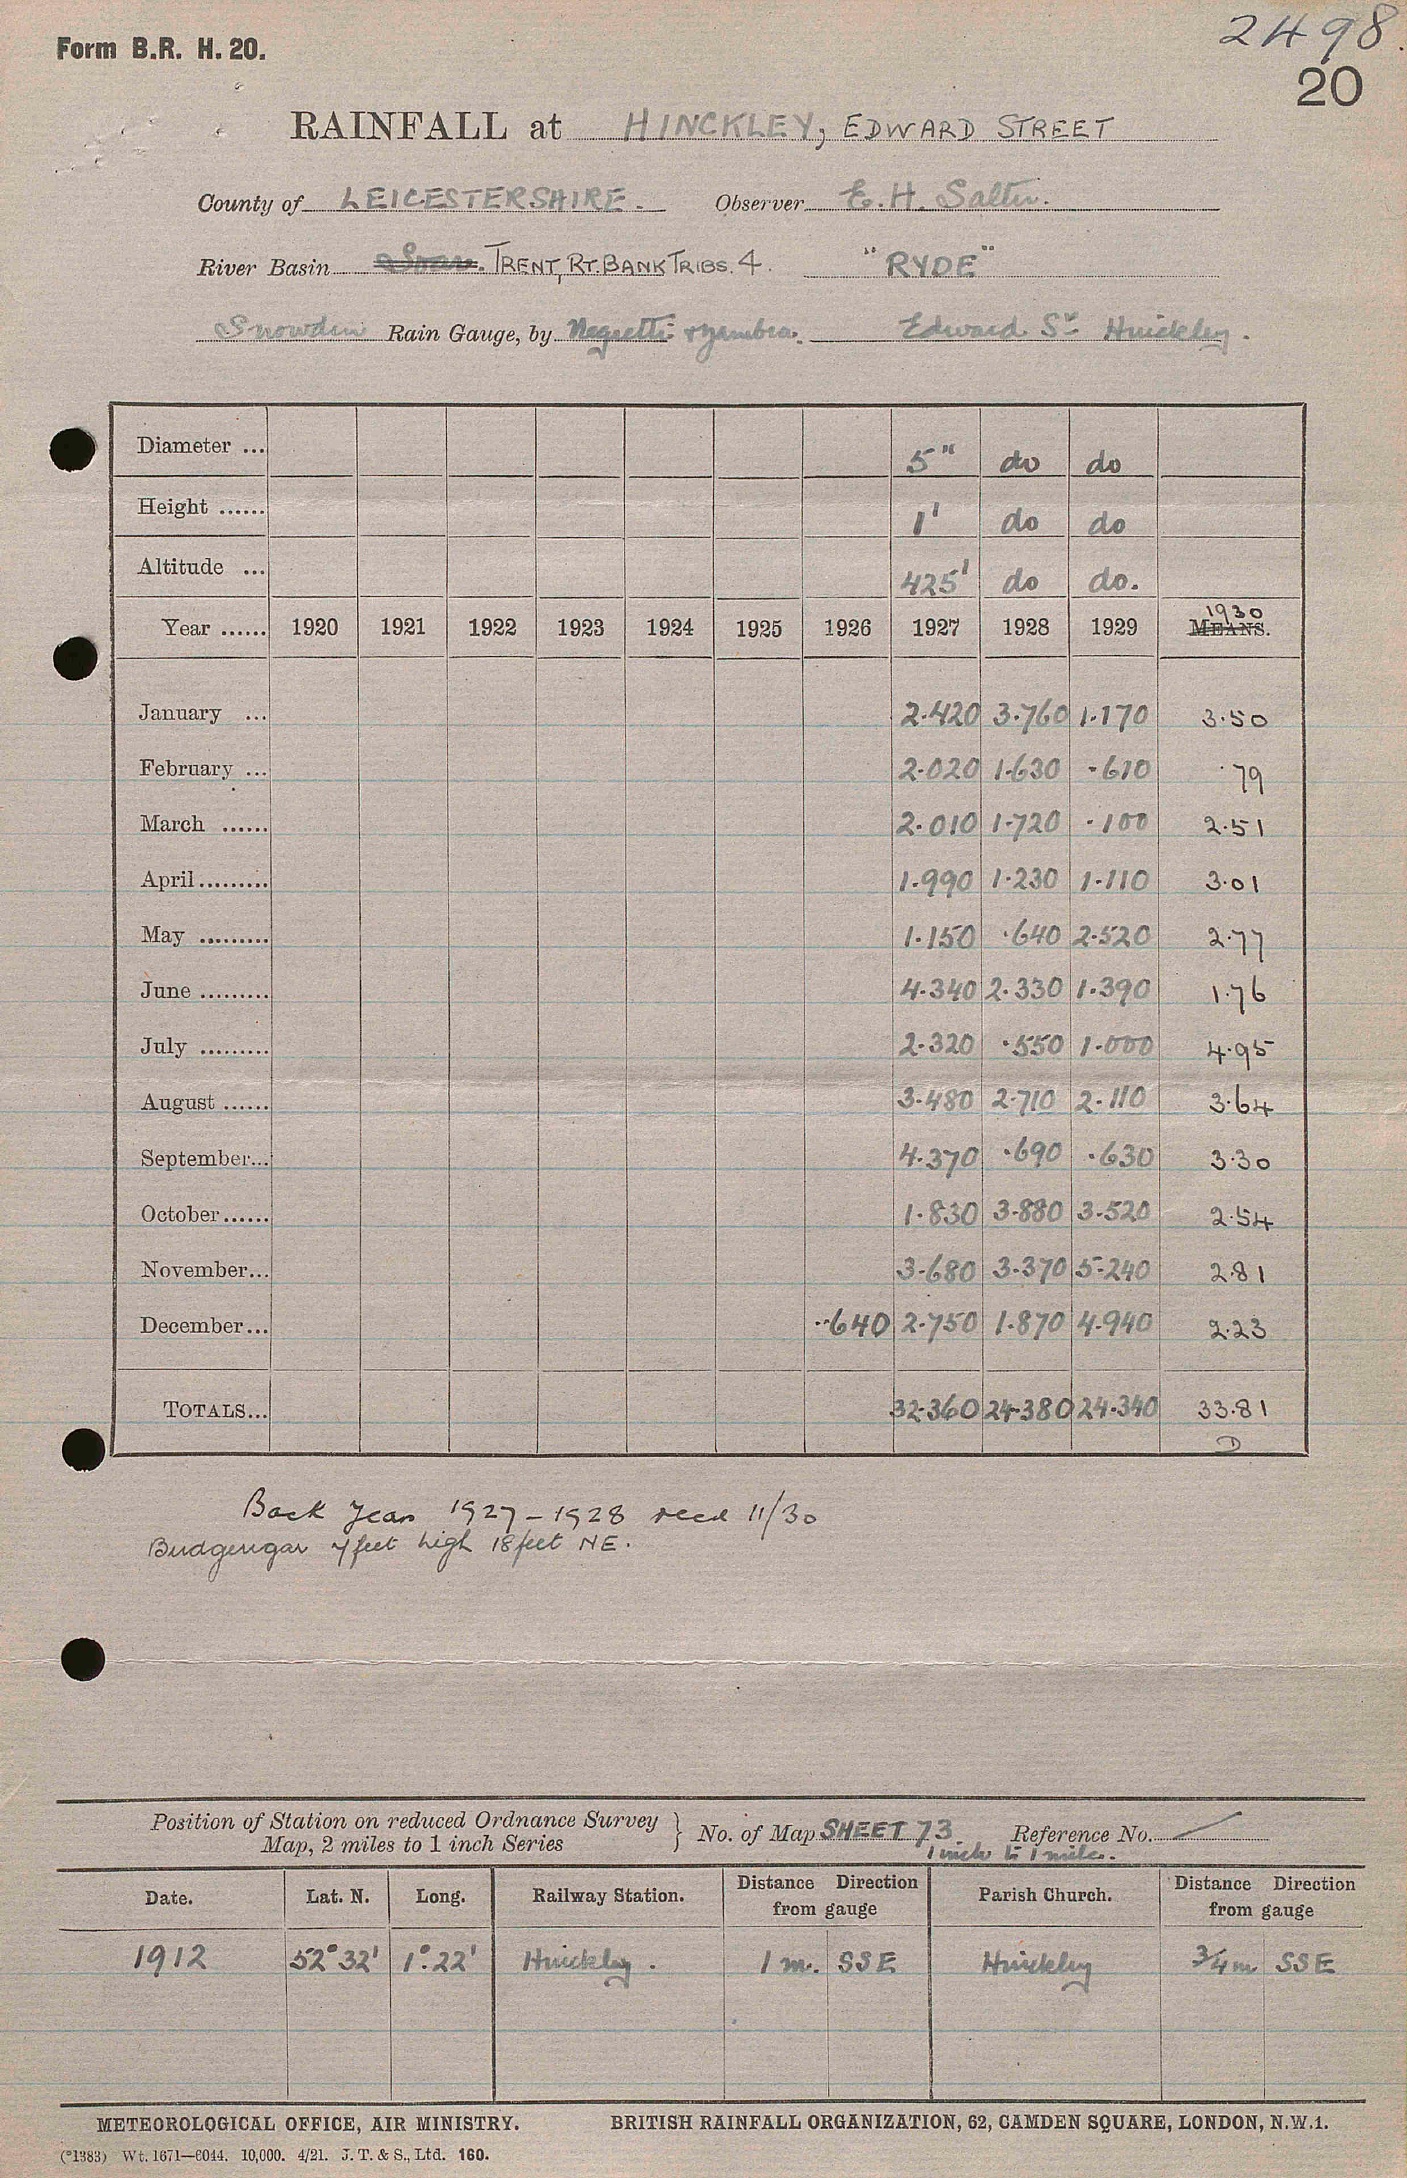 2498
Form B.R. H. 20.
20
RAINFALL at HINCKLEY, EDWARD STREET
County of LEICESTERSHIRE. Observer E. H. Salter.
River Basin Soar. TRENT, RT. BANK TRIBS. 4. "RYDE"
Snowdon Rain Gauge, by Negretti & Zambra. Edward St Hinckley.
Diameter ... 5" do do
Height ...... 1' do do
Altitude ... 425' do do.
1930
Year ...... 1920 1921 1922 1923 1924 1925 1926 1927 1928 1929 MEANS.
January ... 2.420 3.760 1.170 3.50
February ... 2.020 1.630 .610 .79
March ...... 2.010 1.720 .100 2.51
April ......... 1.990 1.230 1.110 3.01
May ......... 1.150 .640 2.520 2.77
June ......... 4.340 2.330 1.390 1.76
July ......... 2.320 .550 1.000 4.95
August ...... 3.480 2.710 2.110 3.64
September... 4.370 .690 .630 3.30
October...... 1.830 3.880 3.520 2.54
November... 3.680 3.370 5.240 2.81
December... .640 2.750 1.870 4.940 2.23
TOTALS... 32.360 24.380 24.340 33.81
D
Back Years 1927-1928 recd 11/30
7 feet high 18 feet NE.
Position of Station on reduced Ordnance Survey
Map, 2 miles to 1 inch Series } No. of Map SHEET 73. Reference No.
1 inch to 1 mile.
Date. Lat. N. Long. Railway Station. Distance Direction from gauge Parish Church. Distance Direction from gauge
1912 52° 32' 1° 22' Hinckley. 1 m. SSE Hinckley 3/4 m SSE
METEOROLOGICAL OFFICE, AIR MINISTRY. BRITISH RAINFALL ORGANIZATION, 62, CAMDEN SQUARE, LONDON, N.W.1.
(*1383) Wt. 1671—6044. 10,000. 4/21. J. T. & S., Ltd. 160.